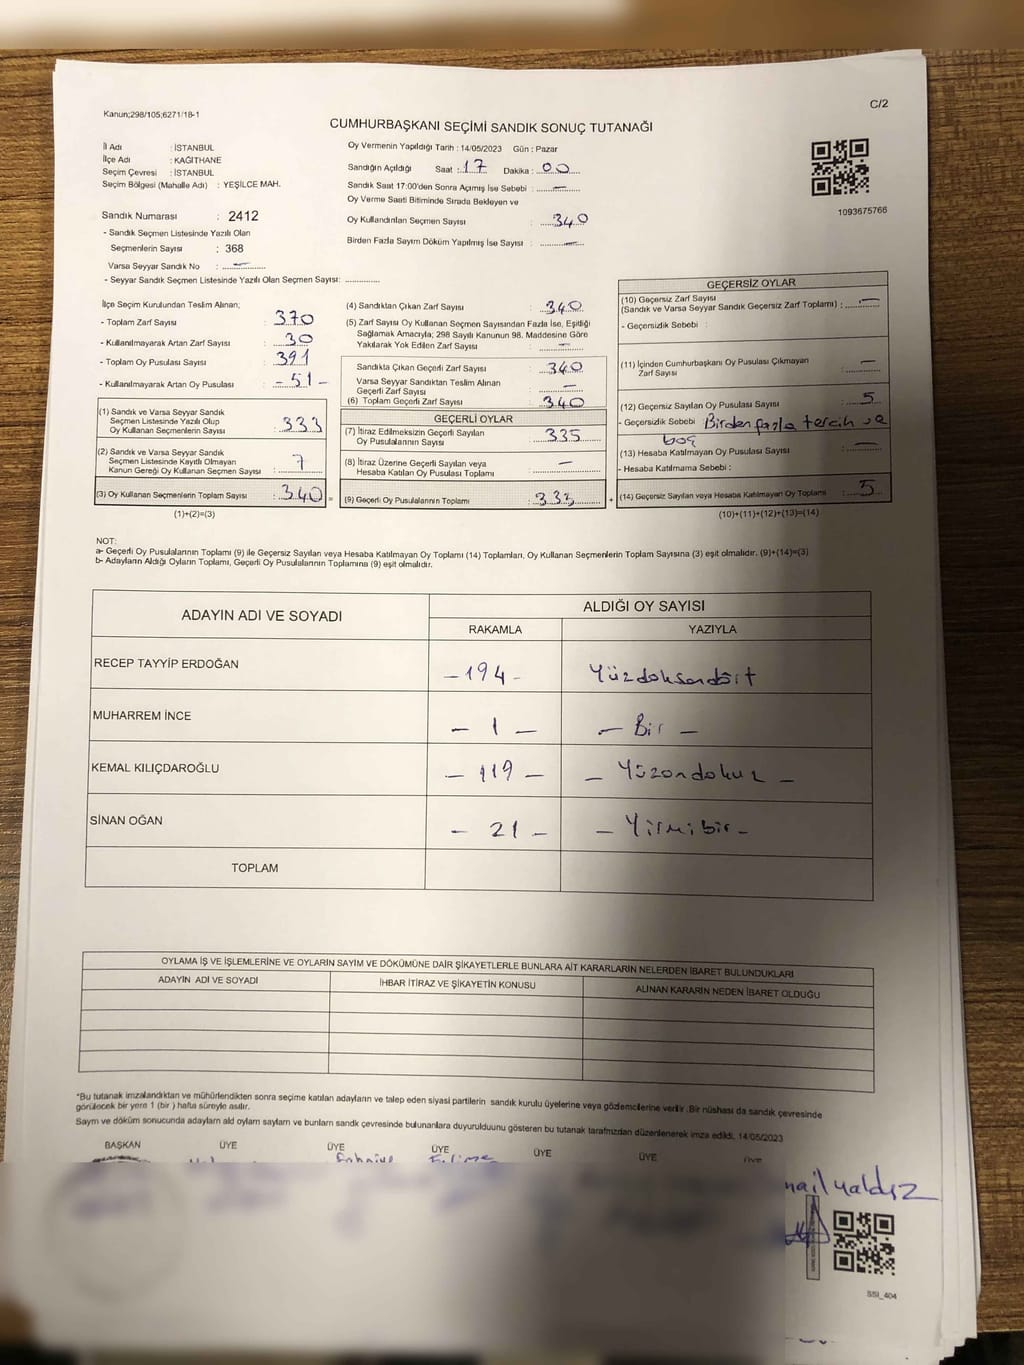 Kanun;298/105;6271/18-1
C/2
CUMHURBAŞKANI SEÇİMİ SANDIK SONUÇ TUTANAĞI
İl Adı : İSTANBUL
İlçe Adı : KAĞITHANE
Seçim Çevresi : İSTANBUL
Seçim Bölgesi (Mahalle Adı) : YEŞİLCE MAH.
Sandık Numarası : 2412
- Sandık Seçmen Listesinde Yazılı Olan
Seçmenlerin Sayısı : 368
Varsa Seyyar Sandık No : –
- Seyyar Sandık Seçmen Listesinde Yazılı Olan Seçmen Sayısı: ............
Oy Vermenin Yapıldığı Tarih : 14/05/2023 Gün : Pazar
Sandığın Açıldığı Saat : 17 Dakika : 00
Sandık Saat 17:00'den Sonra Açımış İse Sebebi : –
Oy Verme Saati Bitiminde Sırada Bekleyen ve
Oy Kullandırılan Seçmen Sayısı : 340
Birden Fazla Sayım Döküm Yapılmış İse Sayısı : –
1093675766
İlçe Seçim Kurulundan Teslim Alınan;
- Toplam Zarf Sayısı : 370
- Kullanılmayarak Artan Zarf Sayısı : 30
- Toplam Oy Pusulası Sayısı : 391
- Kullanılmayarak Artan Oy Pusulası : - 51 -
(1) Sandık ve Varsa Seyyar Sandık
Seçmen Listesinde Yazılı Olup
Oy Kullanan Seçmenlerin Sayısı : 333
(2) Sandık ve Varsa Seyyar Sandık
Seçmen Listesinde Kayıtlı Olmayan
Kanun Gereği Oy Kullanan Seçmen Sayısı : 7
(3) Oy Kullanan Seçmenlerin Toplam Sayısı : 340 =
(1)+(2)=(3)
(4) Sandıktan Çıkan Zarf Sayısı : 340
(5) Zarf Sayısı Oy Kullanan Seçmen Sayısından Fazla İse, Eşitliği
Sağlamak Amacıyla; 298 Sayılı Kanunun 98. Maddesine Göre
Yakılarak Yok Edilen Zarf Sayısı : –
Sandıkta Çıkan Geçerli Zarf Sayısı : 340
Varsa Seyyar Sandıktan Teslim Alınan
Geçerli Zarf Sayısı : –
(6) Toplam Geçerli Zarf Sayısı : 340
GEÇERLİ OYLAR
(7) İtiraz Edilmeksizin Geçerli Sayılan
Oy Pusulalarının Sayısı : 335
(8) İtiraz Üzerine Geçerli Sayılan veya
Hesaba Katılan Oy Pusulası Toplamı : –
(9) Geçerli Oy Pusulalarının Toplamı : 333 +
GEÇERSİZ OYLAR
(10) Geçersiz Zarf Sayısı
(Sandık ve Varsa Seyyar Sandık Geçersiz Zarf Toplamı) : –
- Geçersizlik Sebebi :
(11) İçinden Cumhurbaşkanı Oy Pusulası Çıkmayan
Zarf Sayısı : –
(12) Geçersiz Sayılan Oy Pusulası Sayısı : 5
- Geçersizlik Sebebi : Birden fazla tercih ve
boş
(13) Hesaba Katılmayan Oy Pusulası Sayısı : –
- Hesaba Katılmama Sebebi :
(14) Geçersiz Sayılan veya Hesaba Katılmayan Oy Toplamı : 5
(10)+(11)+(12)+(13)=(14)
NOT:
a- Geçerli Oy Pusulalarının Toplamı (9) ile Geçersiz Sayılan veya Hesaba Katılmayan Oy Toplamı (14) Toplamları, Oy Kullanan Seçmenlerin Toplam Sayısına (3) eşit olmalıdır. (9)+(14)=(3)
b- Adayların Aldığı Oyların Toplamı, Geçerli Oy Pusulalarının Toplamına (9) eşit olmalıdır.
ADAYIN ADI VE SOYADI
ALDIĞI OY SAYISI
RAKAMLA YAZIYLA
RECEP TAYYİP ERDOĞAN - 194 - Yüzdoksandört
MUHARREM İNCE - 1 - - Bir -
KEMAL KILIÇDAROĞLU - 119 - - Yüzondokuz -
SİNAN OĞAN - 21 - - Yirmibir -
TOPLAM
OYLAMA İŞ VE İŞLEMLERİNE VE OYLARIN SAYIM VE DÖKÜMÜNE DAİR ŞİKAYETLERLE BUNLARA AİT KARARLARIN NELERDEN İBARET BULUNDUKLARI
ADAYIN ADI VE SOYADI İHBAR İTİRAZ VE ŞİKAYETİN KONUSU ALINAN KARARIN NEDEN İBARET OLDUĞU
*Bu tutanak imzalandıktan ve mühürlendikten sonra seçime katılan adayların ve talep eden siyasi partilerin sandık kurulu üyelerine veya gözlemcilerine verilir. Bir nüshası da sandık çevresinde
görülecek bir yere 1 (bir ) hafta süreyle asılır.
Sayım ve döküm sonucunda adayların ald oyların sayların ve bunların sandk çevresinde bulunanlara duyurulduunu gösteren bu tutanak tarafmzdan düzenlenerek imza edildi. 14/05/2023
BAŞKAN ÜYE ÜYE ÜYE ÜYE ÜYE ÜYE
mail yaldız
SSI_404